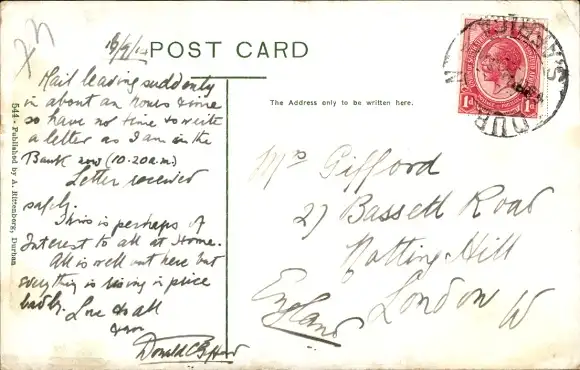 POST CARD
Mail leaving suddenly
in about an hours time
so have not time to write
a letter as I am in the
Bank now (10.20 a.m.)
Letter received
safely.
This is perhaps of
Interest to all at Home.
All is well out here but
everything is rising in price
badly.
Love to all
from
Donald
544. Published by A. Rittenberg, Durban
The Address only to be written here.
Mrs Gifford
27 Bassett Road
Notting Hill
London W
England
1d 1d
DUR